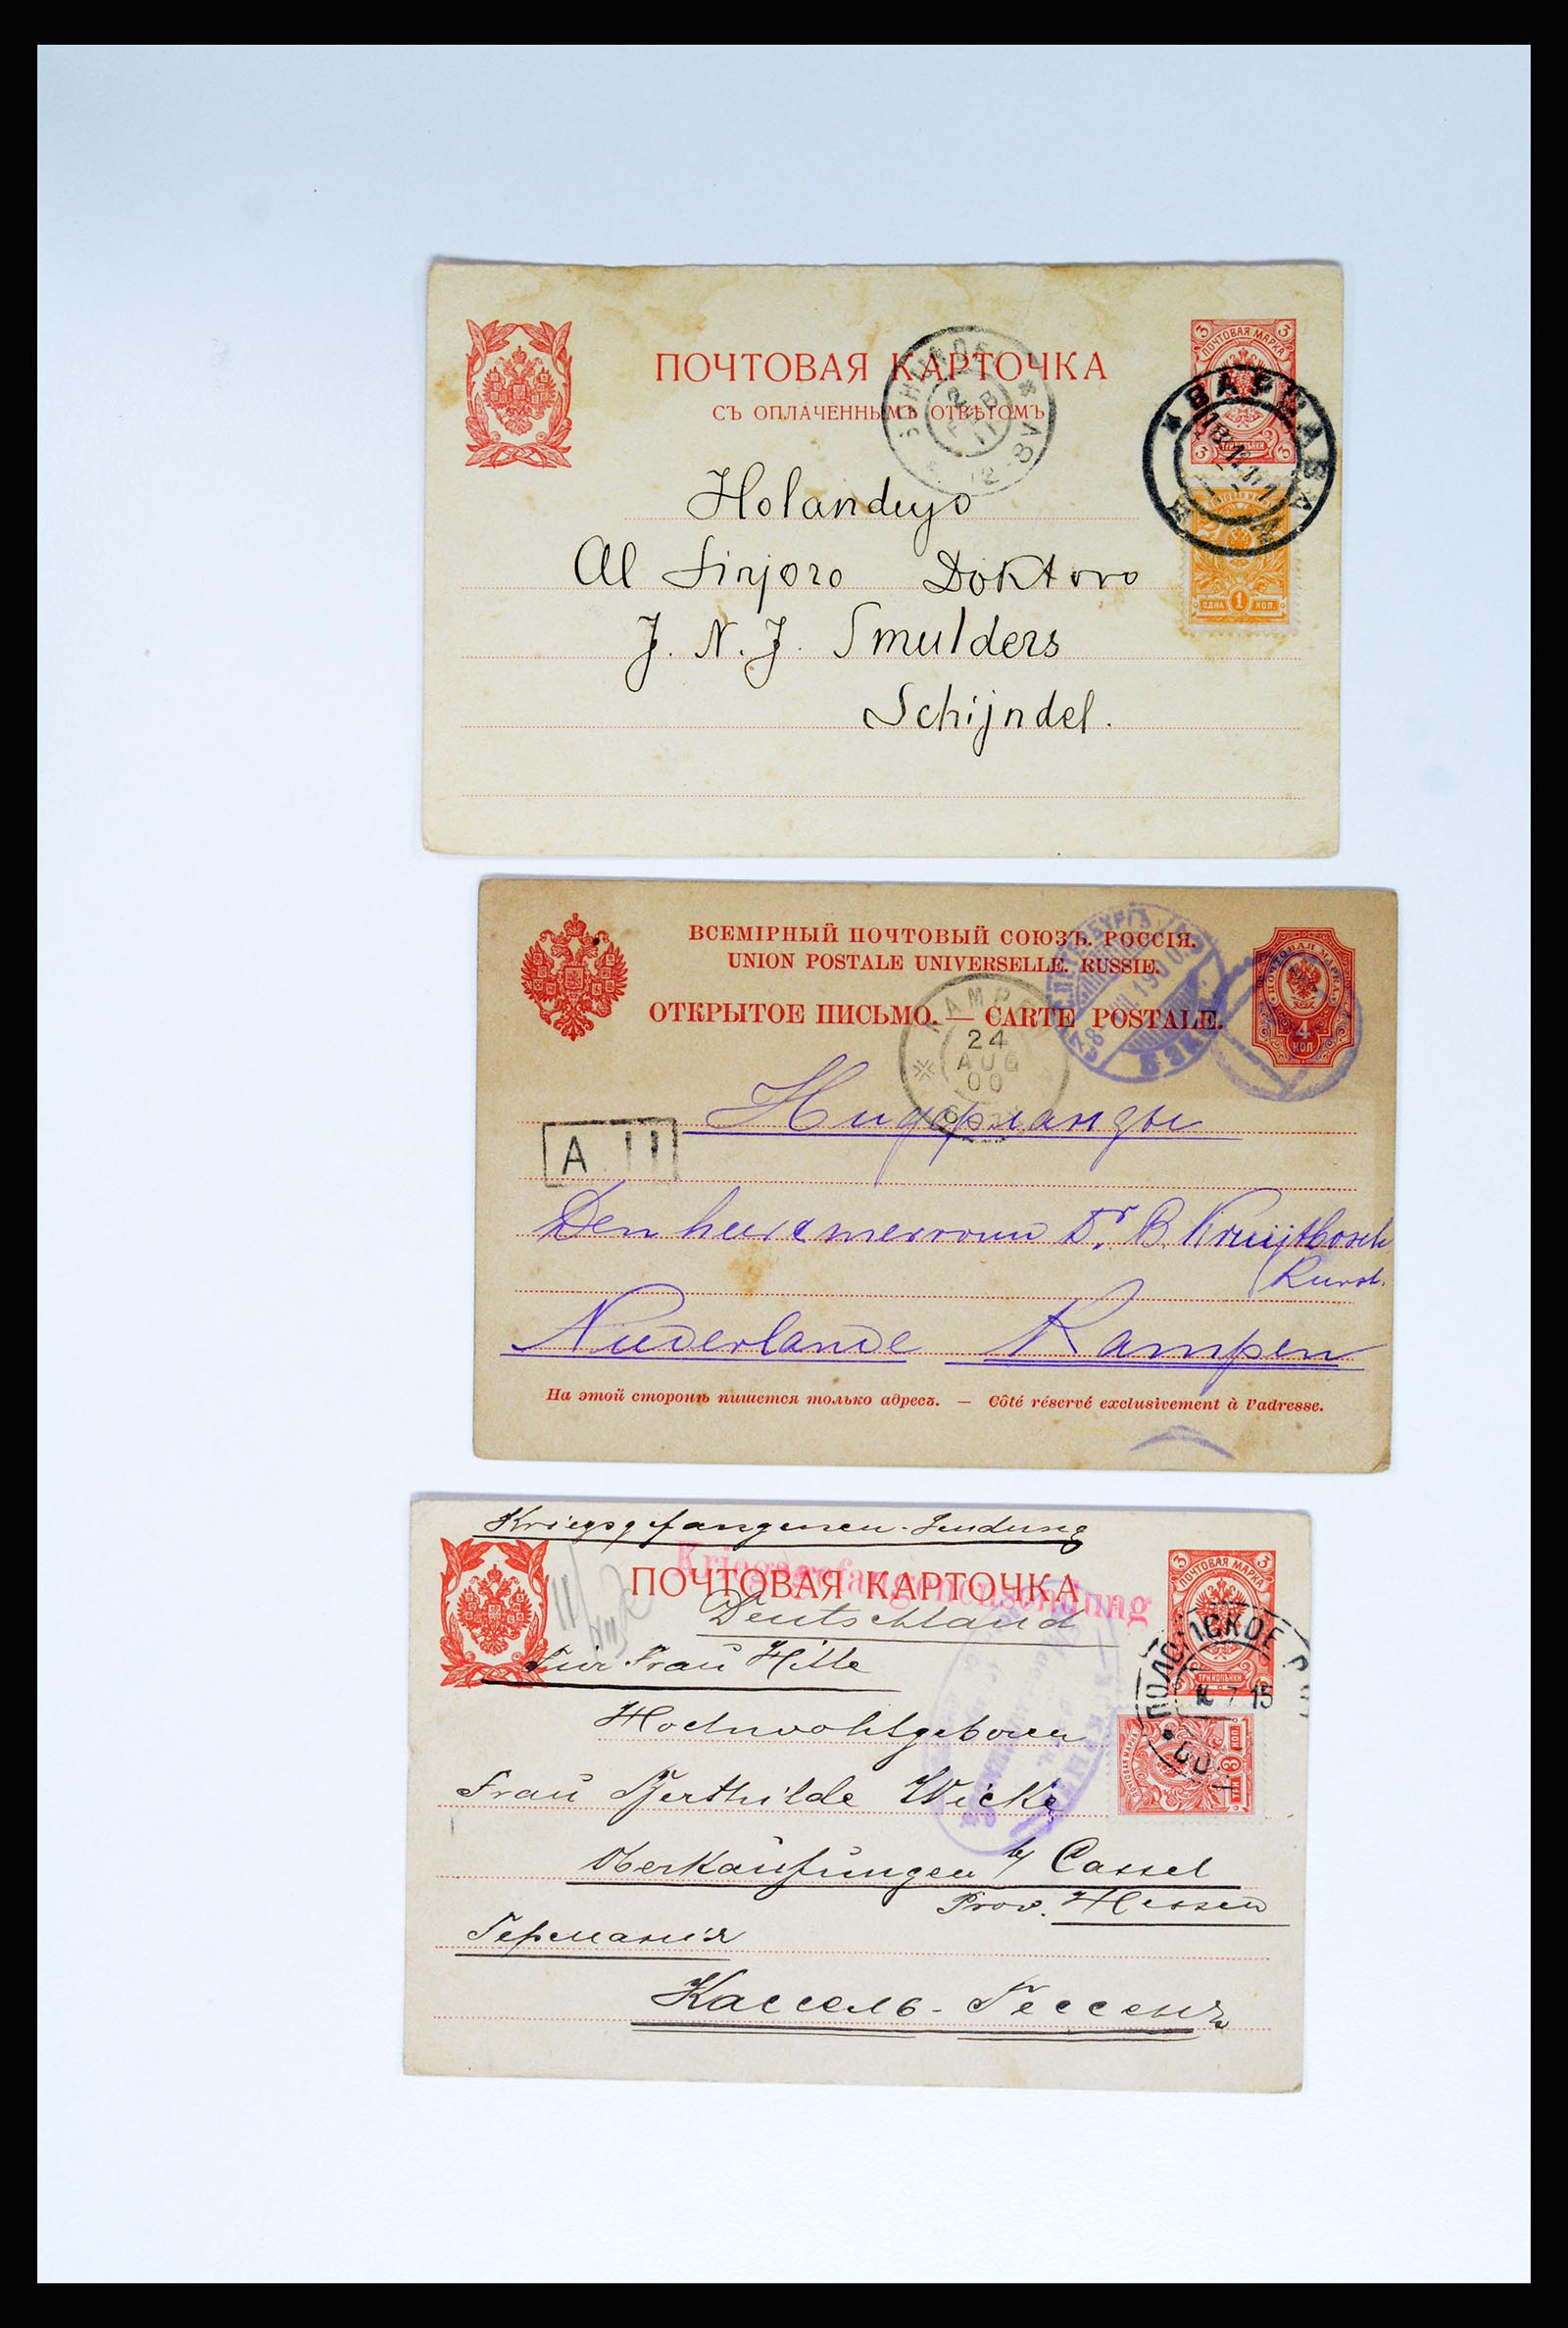 ПОЧТОВАЯ КАРТОЧКА
СЪ ОПЛАЧЕННЫМЪ ОТВѢТОМЪ
3 3
ПОЧТОВАЯ МАРКА
ТРИ КОПѢЙКИ
ВАРШАВА
FEB
ОДНА 1 КОП.
Holandujo
Al Sinjoro Doktoro
J. N. J. Smulders
Schijndel.
ВСЕМІРНЫЙ ПОЧТОВЫЙ СОЮЗЪ. РОССІЯ.
UNION POSTALE UNIVERSELLE. RUSSIE.
ОТКРЫТОЕ ПИСЬМО. — CARTE POSTALE.
ПОЧТОВАЯ МАРКА
4
КОП
1900
KAMPEN
24
AUG
00
A
Нидерланды
Den heere mevrouw Dr. B. Kruijtbosch
Niederlande Kampen
На этой сторонѣ пишется только адресъ. — Côté réservé exclusivement à l'adresse.
Kriegsgefangenen-Sendung
Kriegsgefangenensendung
ПОЧТОВАЯ КАРТОЧКА
3 3
ПОЧТОВАЯ МАРКА
ТРИ КОПѢЙКИ
7 15
ПОЧТОВАЯ МАРКА
ТРИ 3 КОП.
Deutschland
Für Frau Hille
Hochwohlgeboren
Frau Berthilde Wicke
Oberkaufungen b/ Cassel
Prov. Hessen
Германія
Кассель-Гессенъ